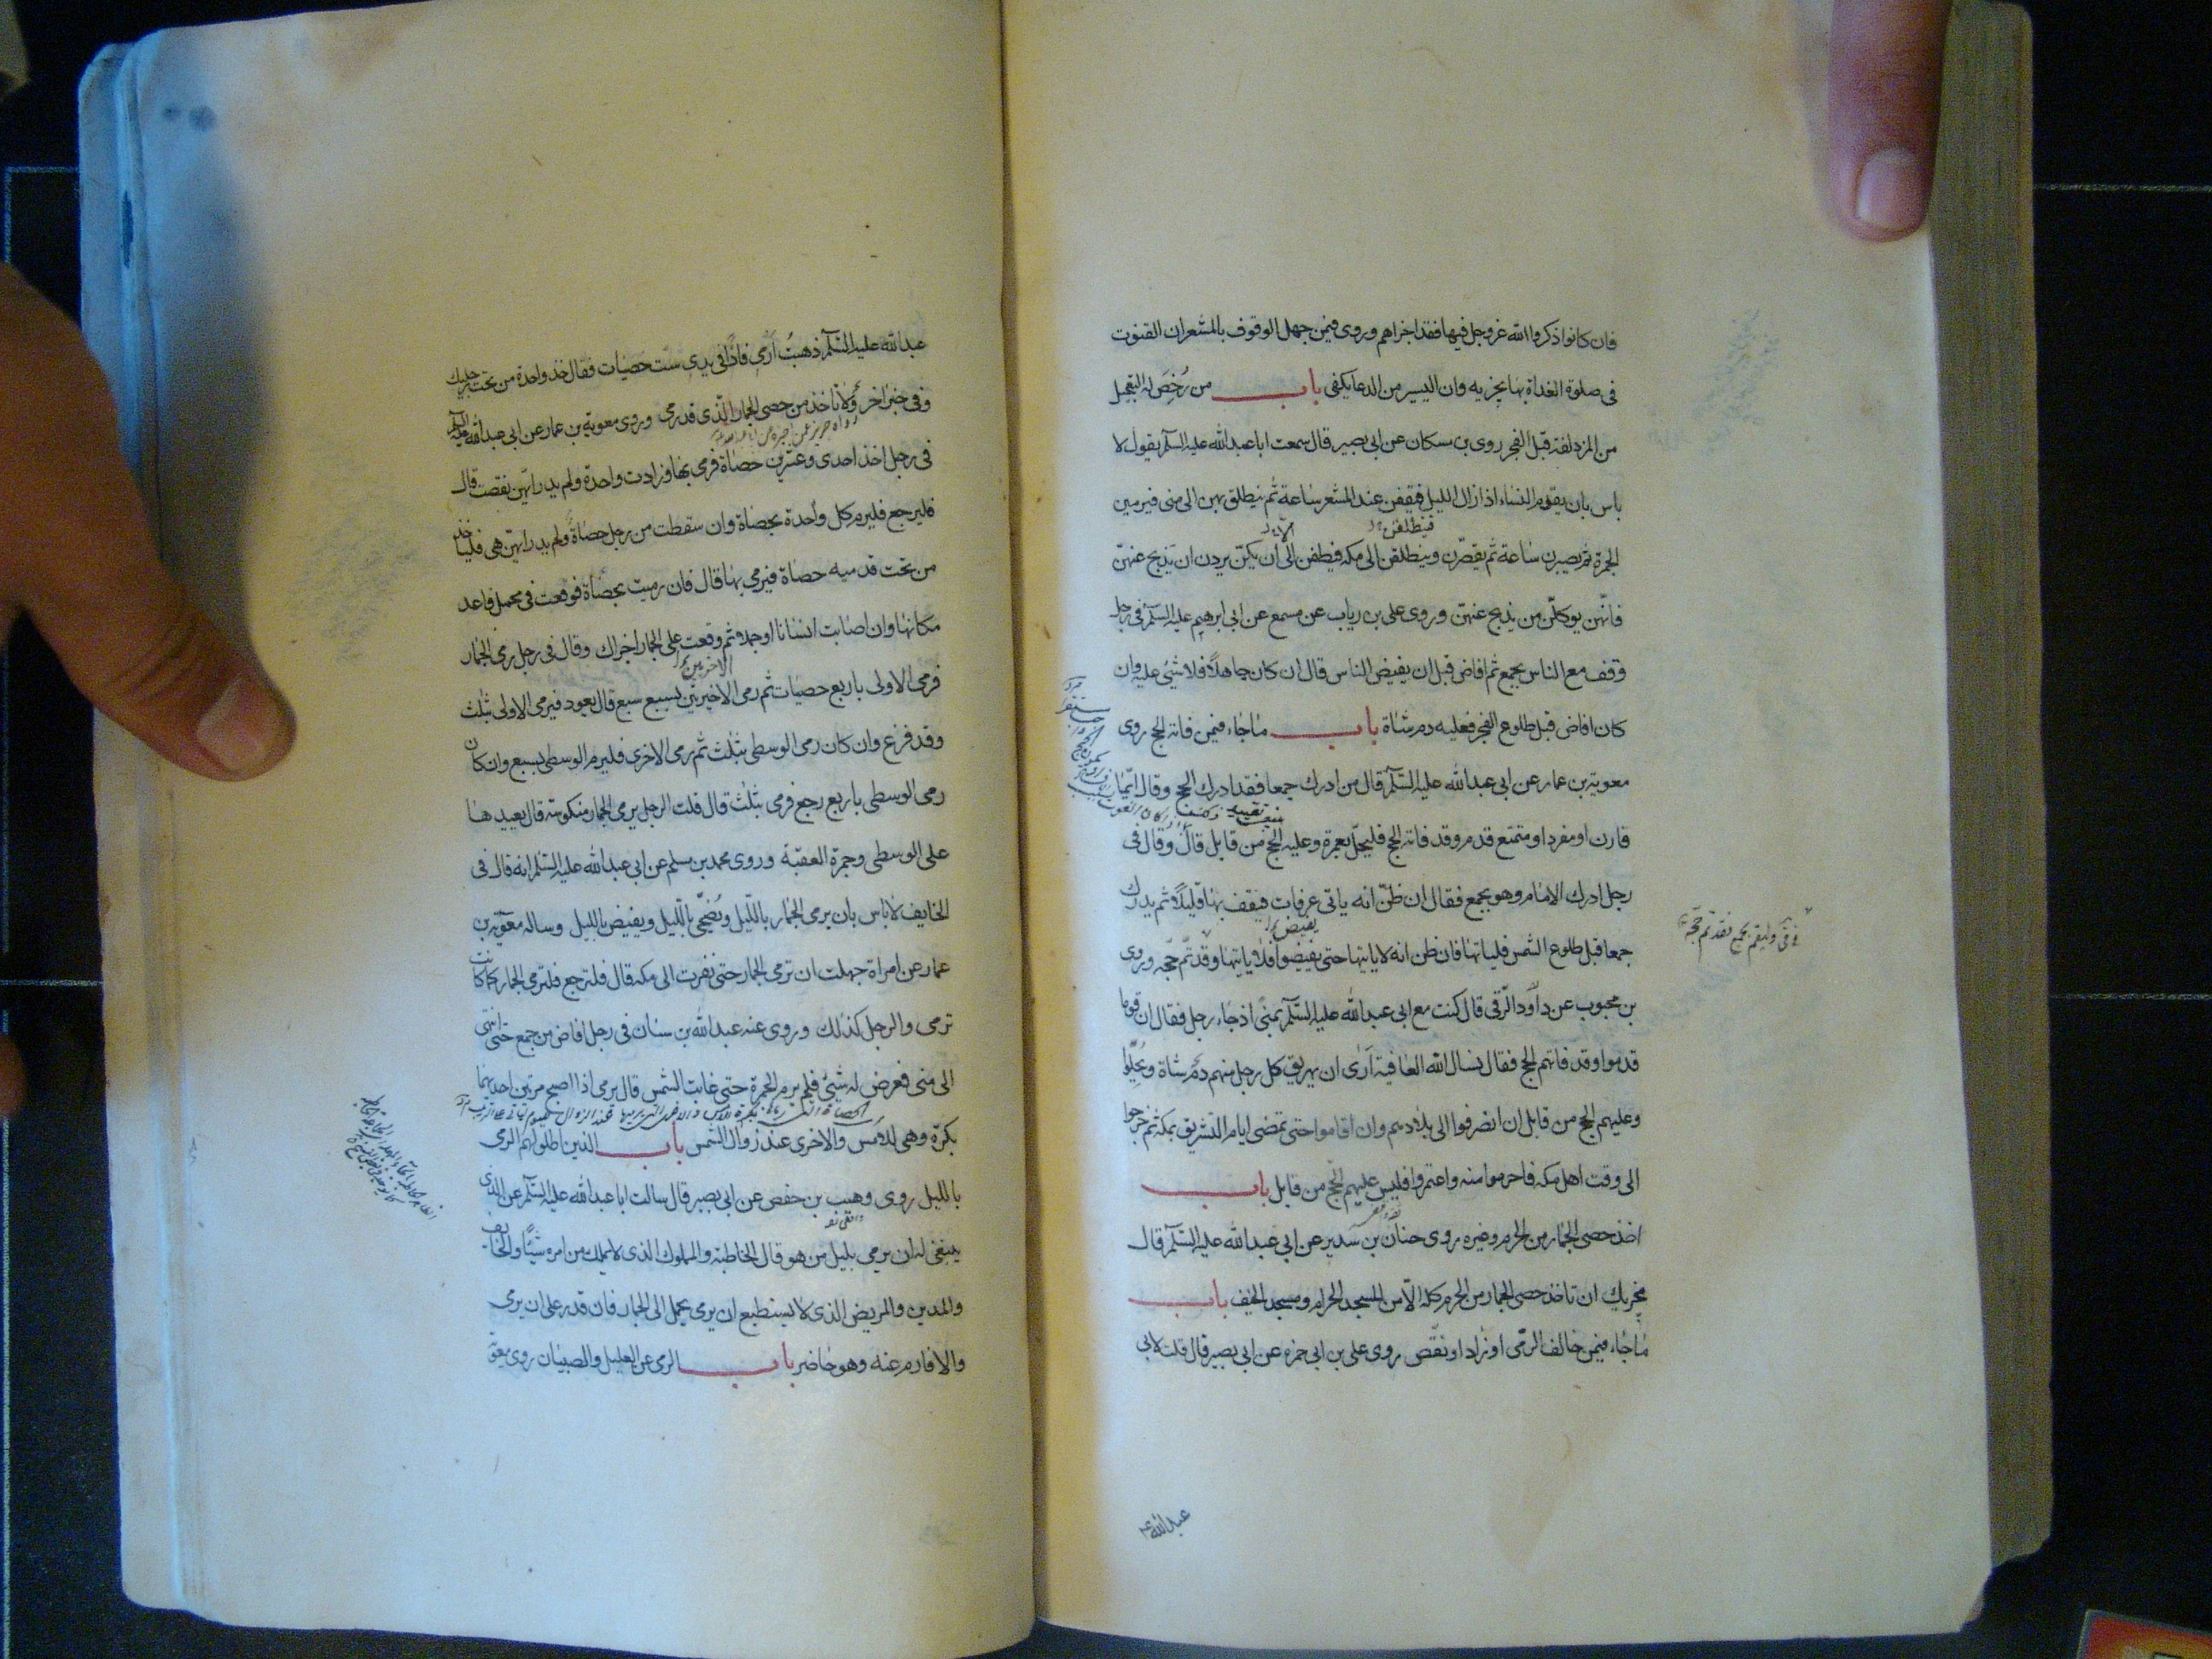 فان كانوا ذكروا الله عزوجل فيها فقد اجزاهم وروى فيمن جهل الوقوف بالمشعر ان القنوت
فى صلوة الغداة بها يجزيه وان اليسير من الدعا يكفى باب من رُخصَ له التعجيل
من المزدلفة قبل الفجر روى بن مسكان عن ابى بصير قال سمعت ابا عبد الله عليه السلم يقول لا
باس بان يقدم النساء اذا زال الليل فيقفن عند المشعر ساعة ثم ينطلق بهن الى منى فيرمين
الجمرة ثم يصبرن ساعة ثم يقصّرن وينطلقن الى مكه فيطفن الى ان يكنّ يردن ان يذبح عنهنّ
فانّهن يوكلّن من يذبح عنهنّ وروى على بن رياب عن مسمع عن ابى ابرهيم عليه السلم فى رجل
وقف مع الناس بجمع ثم افاض قبل ان يفيض الناس قال ان كان جاهلاً فلا شئ عليه وان
كان افاض قبل طلوع الفجر فعليه دم شاة باب ما جاء فيمن فاته الحج روى
معوية بن عمار عن ابى عبد الله عليه السلم قال من ادرك جمعا فقد ادرك الحج وقال ايّما
قارن او مفرد او متمتع قدم وقد فاته الحج فليحلّ بعمرة وعليه الحج من قابل قال وقال فى
رجل ادرك الامام وهو بجمع فقال ان ظنّ انه ياتى عرفات فيقف بها قليلاً ثم يدرك
جمعا قبل طلوع الشمس فلياتها فان ظن انه لا ياتيها حتى يفيضوا فلا ياتيها وقد تمّ حجّه وروى
بن محبوب عن داود الرقى قال كنت مع ابى عبد الله عليه السلم بمنى اذ جاء رجل فقال ان قوما
قدموا وقد فاتهم الحج فقال نسال الله العافية آرى ان يهريق كل رجل منهم دم شاة ويُحلّوا
وعليهم الحج من قابل ان انصرفوا الى بلادهم وان اقاموا حتى تمضى ايام التشريق بمكه ثم خرجوا
الى وقت اهل مكه فاحرموا منه واعتمروا فليس عليهم الحج من قابل باب
اخذ حصى الجمار من الحرم وغيره روى حنان بن سدير عن ابى عبد الله عليه السلم قال
يجزيك ان تاخذ حصى الجمار من الحرم كله الّا من المسجد الحرام ومسجد الخيف باب
ما جاء فيمن خالف الرمى او زاد او نقص روى على بن ابى حمزه عن ابى بصير قال قلت لابى
عبد الله
عبد الله عليه السلم ذهبتُ ارمى فاذا فى يدى ستّ حصيات فقال خذ واحدة من تحت رجليك
وفى خبر اخر ولا تاخذ من حصى الجمار الذى قد رمى وروى معوية بن عمار عن ابى عبد الله عليه السلم
فى رجل اخذ احدى وعشرين حصاة فرمى بها وزادت واحدة ولم يدر ايتهن نقصت قال
فليرجع فليرم كل واحدة بحصاة وان سقطت من رجل حصاة ولم يدر ايتهن هى فلياخذ
من تحت قدميه حصاة فيرمى بها قال فان رميت بحصاة فوقعت فى محمل فاعد
مكانها وان اصابت انسانا او جملا ثم وقعت على الجمار اجزاك وقال فى رجل رمى الجمار
فرمى الاولى باربع حصيات ثم رمى الاخيرتين بسبع سبع قال يعود فيرمى الاولى بثلث
وقد فرغ وان كان رمى الوسطى بثلث ثم رمى الاخرى فليرم الوسطى بسبع وان كان
رمى الوسطى باربع رجع فرمى بثلث قال قلت الرجل يرمى الجمار منكوسة قال يعيدها
على الوسطى وجمرة العقبة وروى محمد بن مسلم عن ابى عبد الله عليه السلم انه قال فى
الخايف لا باس بان يرمى الجمار بالليل ويُضحّى بالليل ويفيض بالليل وساله معوية بن
عمار عن امراة جهلت ان ترمى الجمار حتى نفرت الى مكه قال فلترجع فلترمى الجمار كما كانت
ترمى والرجل كذلك وروى عنه عبد الله بن سنان فى رجل افاض من جمع حتى انتهى
الى منى فعرض له شئ فلم يرم الجمرة حتى غابت الشمس قال يرمى اذا اصبح مرتين احديهما
بكرة وهى للامس والاخرى عند زوال الشمس باب الذين اطلق لهم الرمى
بالليل روى وهيب بن حفص عن ابى بصير قال سالت ابا عبد الله عليه السلم عن الذى
ينبغى له ان يرمى بليل من هو قال الخاطبة والمملوك الذى لا يملك من امره شيئاً والخايف
والمدين والمريض الذى لا يستطيع ان يرمى يحمل الى الجمار فان قدر على ان يرمى
والا فارم عنه وهو حاضر باب الرمى عن العليل والصبيان روى معوية